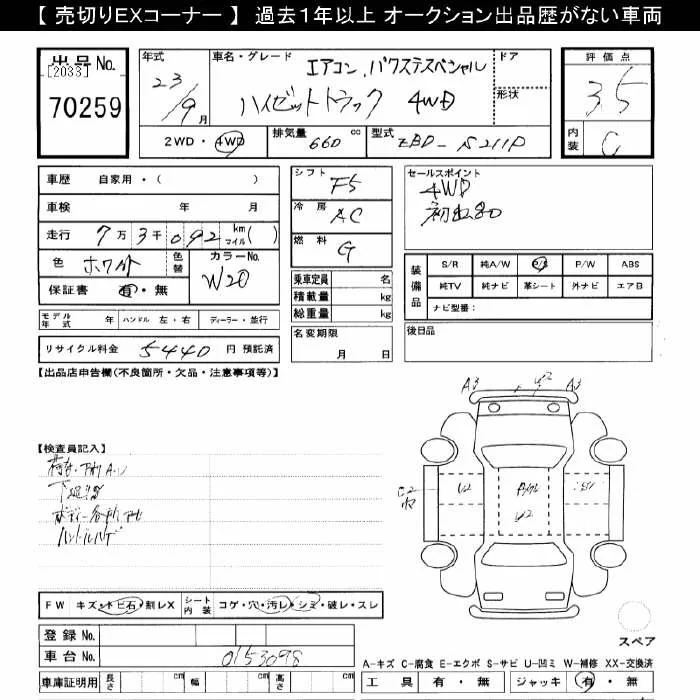 【 売切りEXコーナー 】 過去１年以上 オークション出品歴がない車両
出品 No.
[2033]
70259
年式
23/9月
車名・グレード
エアコン、パワステスペシャル
ハイゼットトラック 4WD
ドア
形状
2WD・4WD
排気量 660 cc
型式 EBD-S211P
評価点
3.5
内装 C
車歴 自家用・( )
車検 年 月
走行 7万3千092 km マイル( )
色 ホワイト 色替
カラーNo. W20
保証書 有・無
モデル年式 年 ハンドル 左・右 ディーラー・並行
リサイクル料金 5440 円 預託済
シフト F5
冷房 AC
燃料 G
乗車定員 名
積載量 kg
総重量 kg
名変期限
月 日
セールスポイント
4WD
装備品
S/R 純A/W P/S P/W ABS
純TV 純ナビ 革シート 外ナビ エアB
ナビ型番：
後日品
【出品店申告欄(不良箇所・欠品・注意事項等)】
【検査員記入】
ハンドルハゲ
A3 U2 A3
U2
U2
FW キズ・トビ石・割レX
シート内装 コゲ・穴・汚レ・シミ・破レ・スレ
登録 No.
車台 No. 0153098
車庫証明用 長さ cm 幅 cm 高さ cm
スペア
A-キズ C-腐食 E-エクボ S-サビ U-凹ミ W-補修 XX-交換済
工具 有・無 ジャッキ 有・無